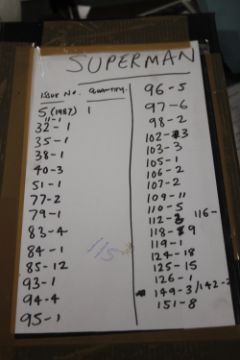 SUPERMAN
Issue No. Quantity.
5 (1987) 1
11-1
32-1
35-1
38-1
40-3
51-1
77-2
79-1
83-4
84-1
85-12
93-1
94-4
95-1
115
96-5
97-6
98-2
102-3
103-3
105-1
106-2
107-2
109-11
110-5
112-3 116-
118-9
119-1
124-18
125-15
126-1
149-3/142-2
151-8